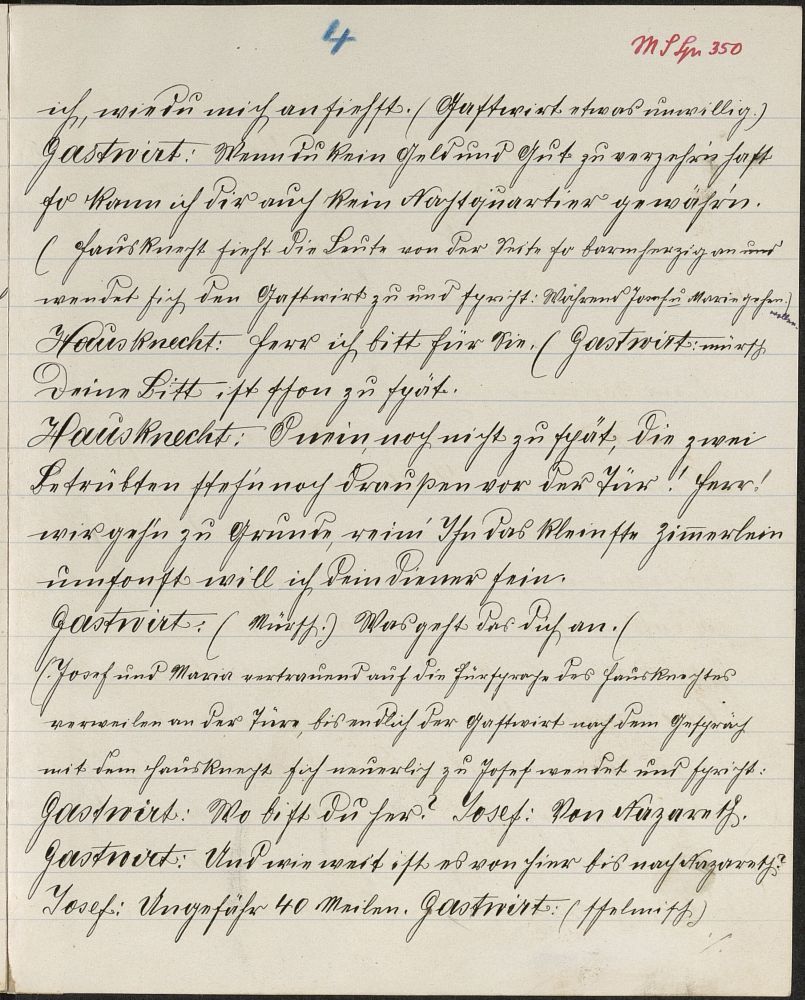 4
M S Gu 350
ich, wie du mich ansiehst. (Gastwirt etwas unwillig.)
Gastwirt: Wenn du kein Geld und Gut zu verzehr'n hast
so kann ich dir auch kein Nachtquartier gewähr'n.
( Hausknecht sieht die Leute von der Seite so barmherzig an und
wendet sich den Gastwirt zu und spricht: Während Josef u Maria gehen.)
wollen.
Hausknecht: Herr ich bitt für Sie. ( Gastwirt: mürsch
Deine Bitt ist schon zu spät.
Hausknecht: O nein, noch nicht zu spät, die zwei
Betrübten steh'n noch draußen vor der Tür! Herr!
wir geh'n zu Grunde, Ihn das kleinste Zimmerlein
umsonst will ich dein Diener sein.
Gastwirt: ( Mürsch:) Was geht das dich an. (
(. Josef und Maria vertrauend auf die Fürsprache des Hausknechtes
verweilen an der Türe, bis endlich der Gastwirt nach dem Gespräch
mit dem Hausknecht sich neuerlich zu Josef wendet und spricht:
Gastwirt: Wo bist du her? Josef: Von Nazareth.
Gastwirt: Und wie weit ist es von hier bis nach Nazareth?
Josef: Ungefähr 40 Meilen. Gastwirt: (schelmisch)